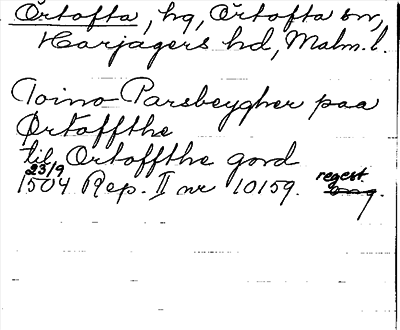 Örtofta, hg, Örtofta sn,
Harjagers hd, Malm. l.
Toino Parsbeygher paa
Ørtoffthe
til Ørtoffthe gord
23/9
1504 Rep. II nr 10159. regest.